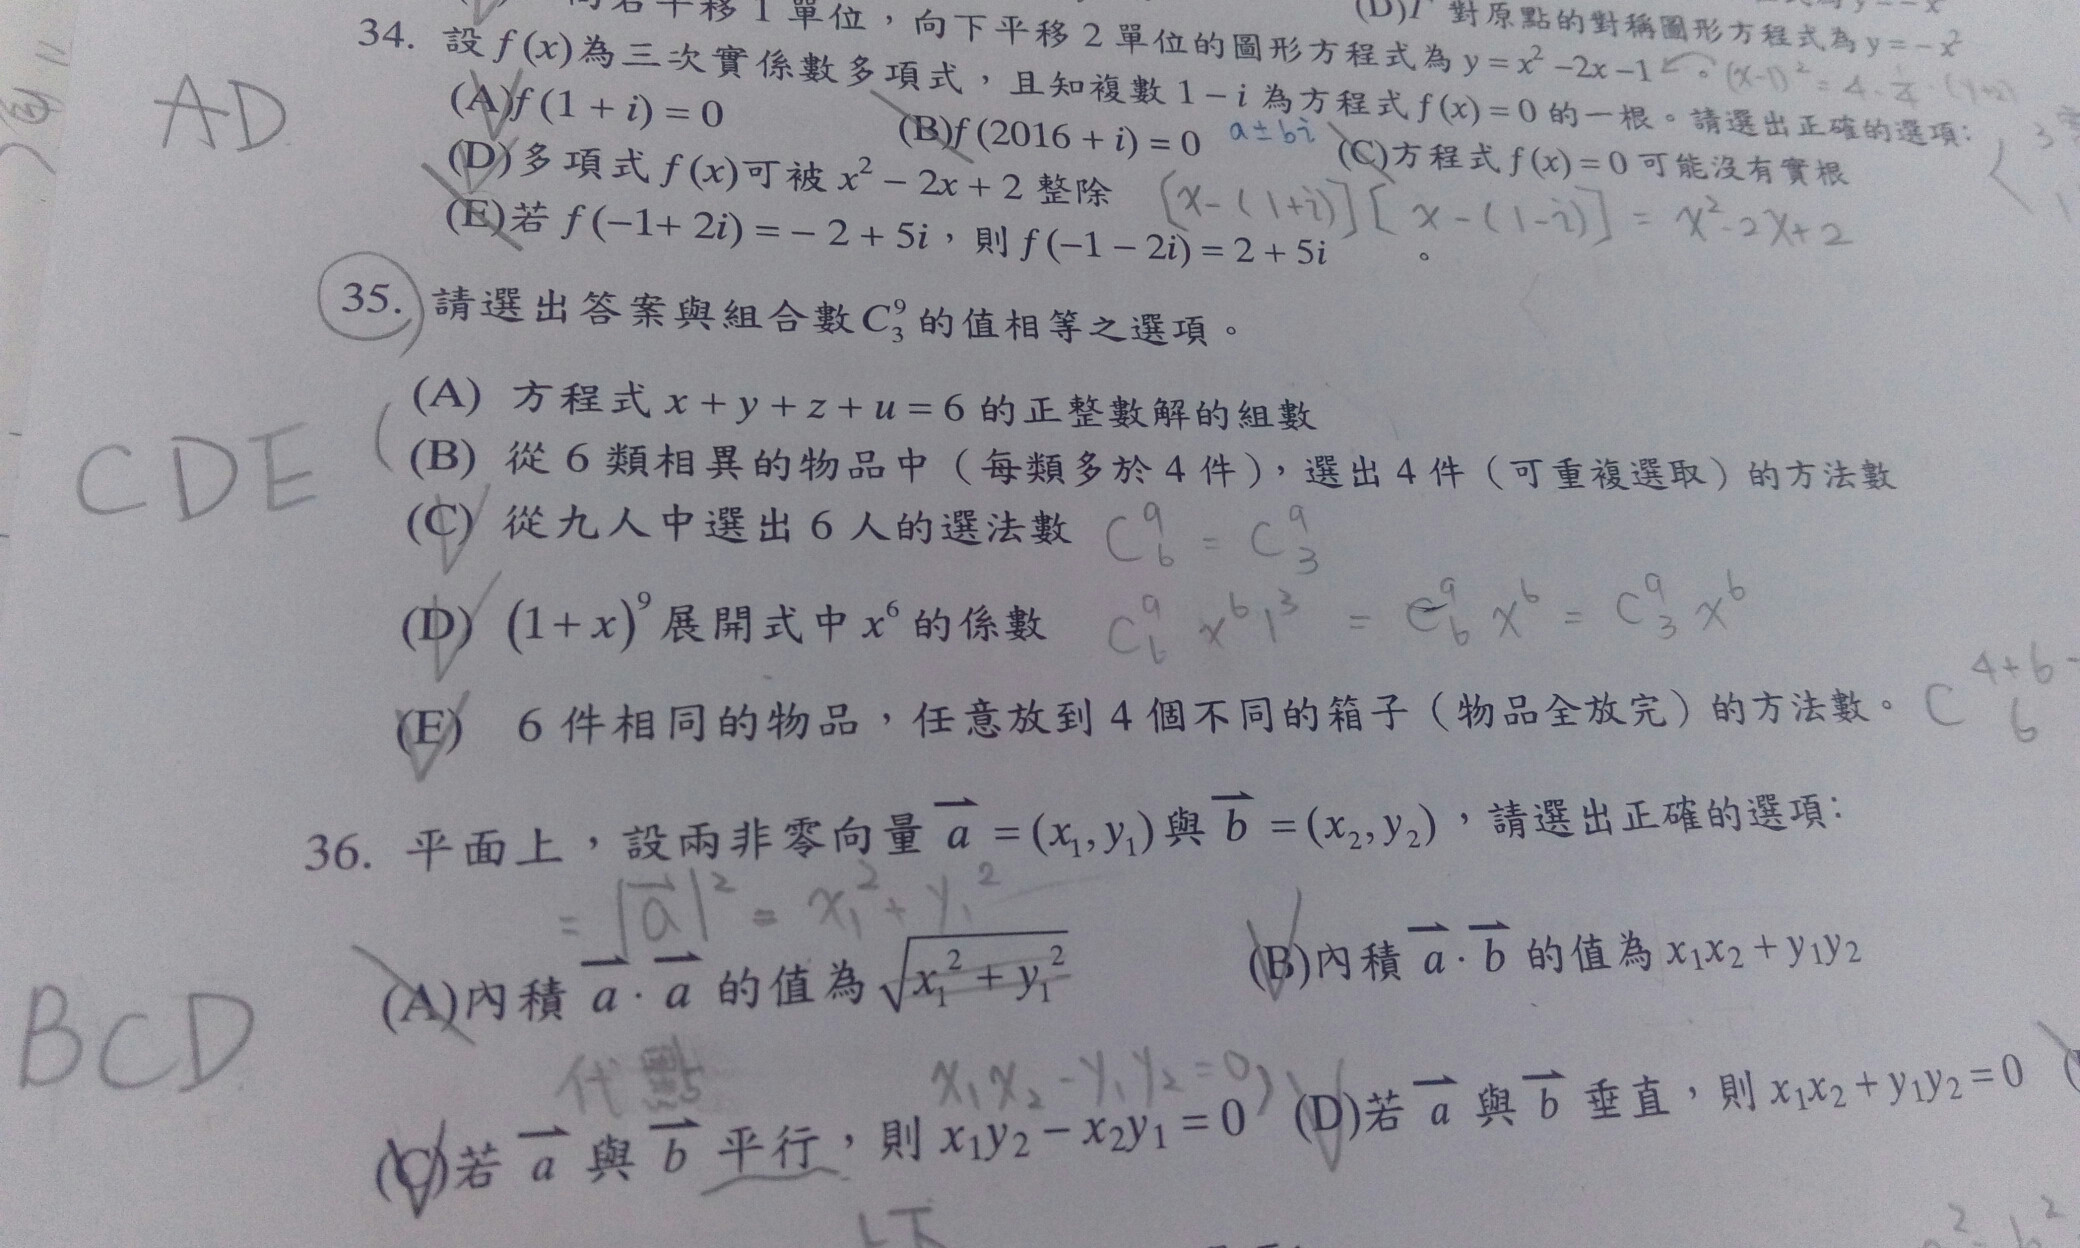 向右平移 1 單位，向下平移 2 單位的圖形方程式為 y = x² − 2x − 1。
(D)Γ 對原點的對稱圖形方程式為 y = − x²
(x-1)² = 4 ·
34. 設 f(x) 為三次實係數多項式，且知複數 1 − i 為方程式 f(x) = 0 的一根。請選出正確的選項：
AD
(A)f(1 + i) = 0
(B)f(2016 + i) = 0
a ± bi
(C)方程式 f(x) = 0 可能沒有實根
(D)多項式 f(x)可被 x² − 2x + 2 整除
[x-(1+i)][x-(1-i)] = x²-2x+2
(E)若 f(−1+ 2i) = − 2 + 5i，則 f(−1 − 2i) = 2 + 5i 。
35. 請選出答案與組合數 C₃⁹ 的值相等之選項。
CDE
(A) 方程式 x + y + z + u = 6 的正整數解的組數
(B) 從 6 類相異的物品中（每類多於 4 件），選出 4 件（可重複選取）的方法數
(C) 從九人中選出 6 人的選法數
C₆⁹ = C₃⁹
(D) (1 + x)⁹ 展開式中 x⁶ 的係數
C₆⁹ x⁶ 1³ = C₆⁹ x⁶ = C₃⁹ x⁶
(E) 6 件相同的物品，任意放到 4 個不同的箱子（物品全放完）的方法數。
C 4+6-
6
36. 平面上，設兩非零向量 a = (x₁, y₁) 與 b = (x₂, y₂)，請選出正確的選項：
= |a|² = x₁² + y₁²
BCD
(A)內積 a · a 的值為 √x₁² + y₁²
(B)內積 a · b 的值為 x₁x₂ + y₁y₂
代
x₁x₂ - y₁y₂ = 0
(C)若 a 與 b 平行，則 x₁y₂ − x₂y₁ = 0
(D)若 a 與 b 垂直，則 x₁x₂ + y₁y₂ = 0